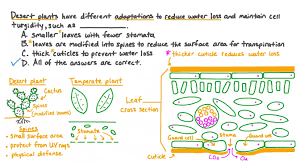 Desert plants have different adaptations to reduce water loss and maintain cell
turgidity, such as
A. smaller leaves with fewer stomata
B. leaves are modified into spines to reduce the surface area for transpiration
C. thick cuticles to prevent water loss
* thicker cuticle reduces water loss
D. All of the answers are correct.
Desert plant
Temperate plant
Cactus
Spines
(modified leaves)
Leaf
Cross Section
Spines
- small surface area
- protect from UV rays
- physical defense
Stomata
Guard cell
Stoma
Guard cell
Cuticle
CO₂
O₂